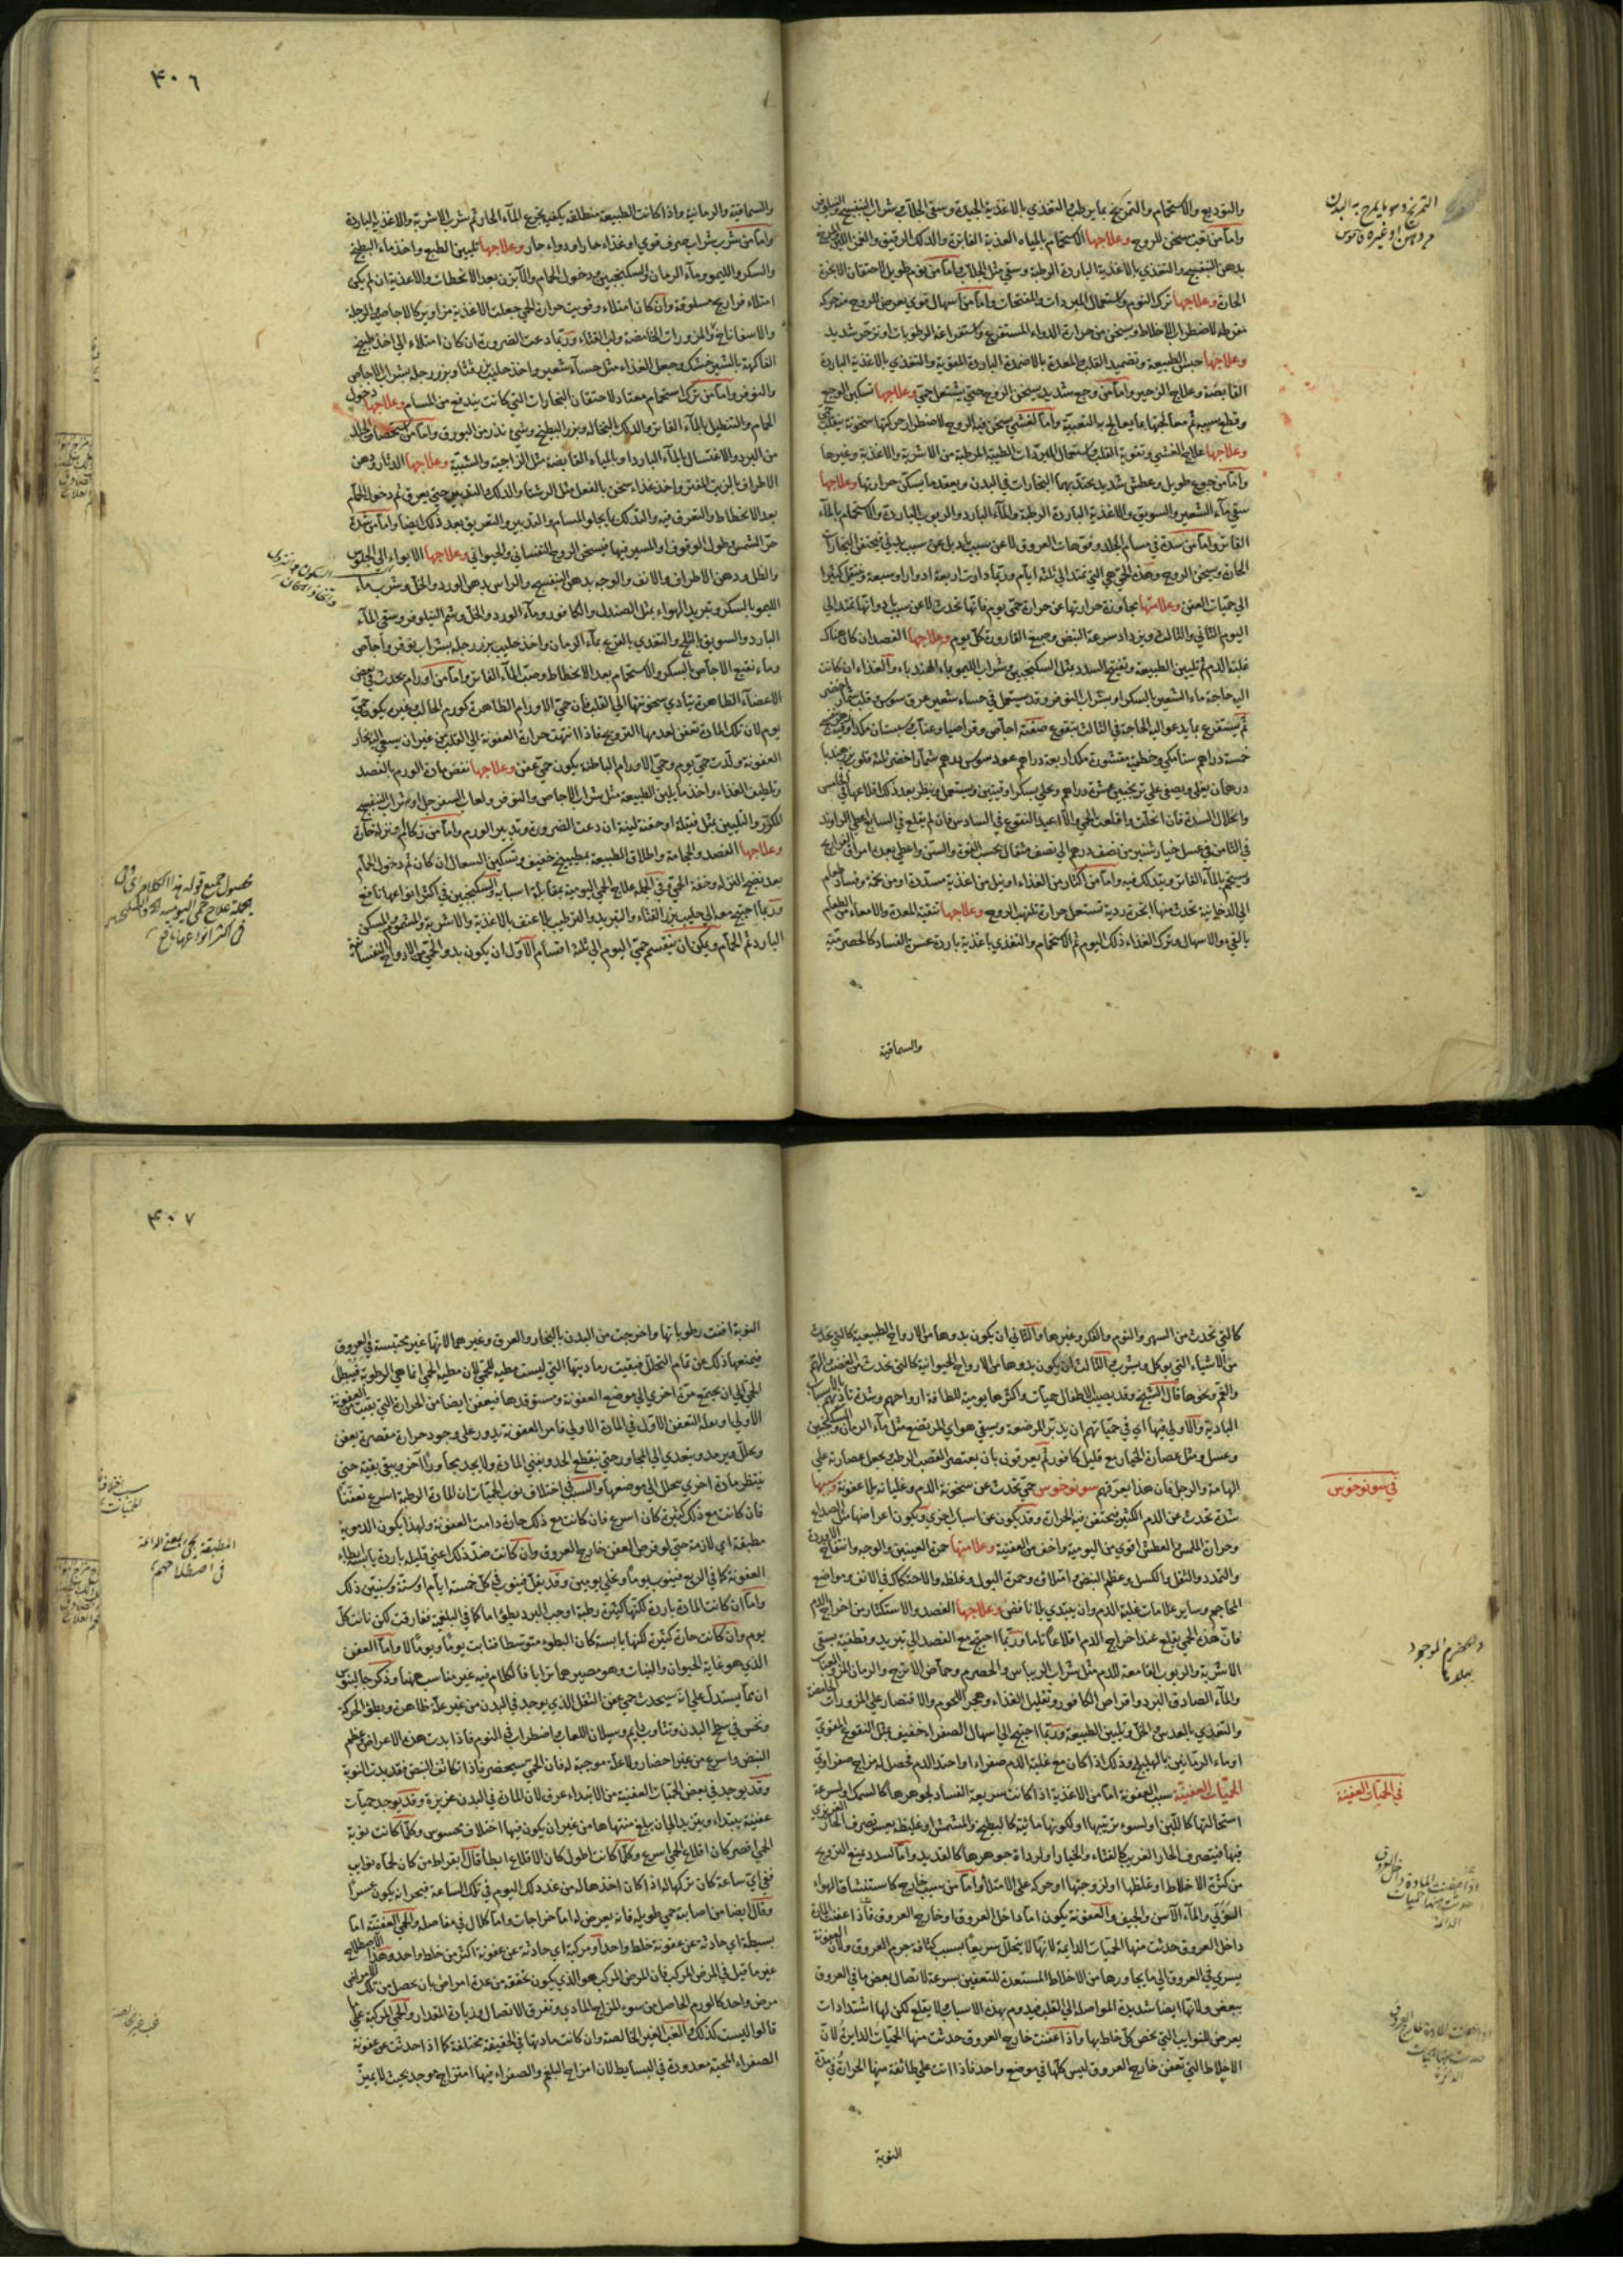 التمريخ دهن يا يمرخ به البدن
من دهن او غيره قاموس
والتوديع والاستحمام والتمريخ بما يرطب والتغذي بالاغذية الجيدة وسقي الجلاب وشراب البنفسج والنيلوفر
واما من تعب يسخن الروح وعلاجها الاستحمام بالمياه العذبة الفاترة والدلك الرقيق والغمز اللين والتمريخ
بدهن البنفسج والتغذي بالاغذية الباردة الرطبة وسقي مثل الجلاب واما من نوم طويل لاحتقان الابخرة
الحارة وعلاجها ترك النوم واستعمال المبردات والمفتحات واما من اسهال قوي يعرض للروح منه حركة
مفرطة لاضطراب الاخلاط ويسخن من حرارة الدواء المستفرغ واستفراغه الرطوبات او تزحر شديد
وعلاجها حبس الطبيعة وتضميد القلب والمعدة بالاضمدة الباردة المقوية والتغذي بالاغذية الباردة
القابضة وعلاج الزحير واما من وجع شديد يسخن الروح حتى يشتعل حمى وعلاجها تسكين الوجع
وقطع سببه ثم معالجتها بما يعالج به التعبية واما لغشي يسخن فيه الروح لاضطراب حركتها سخونة ينقلب حمى
وعلاجها علاج الغشي وتقوية القلب واستعمال المبردات الطيبة المرطبة من الاشربة والاغذية وغيرها
واما من جوع طويل وعطش شديد يحتد بهما البخارات في البدن ويفقد ما يسكن حرارتها وعلاجها
سقي ماء الشعير والسويق والاغذية الباردة الرطبة والماء البارد والربوب الباردة والاستحمام بالماء
الفاتر واما من سدة في مسام الجلد وفوهات العروق لا عن سبب بدني فيحتقن البخارات
الحارة ويسخن الروح وهذه الحمى هي التي تمتد الى ثلثة ايام وربما دارت اربعة ادوار او سبعة وتنتقل كثيرا
الى حميات العفن وعلامتها مجاوزة حرارتها عن حرارة حمى يوم فانها تحدث لا عن سبب باد وانها تمتد الى
اليوم الثاني والثالث ويزداد سرعة النبض وصبغ القارورة كل يوم وعلاجها الفصد ان كان هناك
غلبة الدم ثم تليين الطبيعة وتفتيح السدد بمثل السكنجبين وشراب الليمو بماء الهندباء والغذاء ان كانت
اليه حاجة ماء الشعير بالسكر او بشراب النوفر وقد يستعمل في حساء شعير عرق سوس وقليل شمار اخضر
ثم يستفرغ بما يدعو اليه الحاجة في الثالث بنقوع صفته اجاص وقراصيا وعناب وسبستان
خمسة دراهم سنا مكي وخطمية مقشورة مكد اربعة دراهم عود سوس درهم شمار اخضر ثلثة قلوب بزر هندبا
درهمان يغلى ويصفى على ترنجبين عشرة دراهم ويحلى بسكر اوقيتين ويستعمل وينظر بعد ذلك اقلاعها في الخامس
وانحلال السدة فان انحلت واقلعت الحمى والا اعيد النقوع في السادس فان لم يقلع في السابع اعطي الراوند
في الثامن في عسل خيار شنبر من نصف درهم الى نصف مثقال بحسب القوة والسن واعطي بعده امراق الفراريج
ويستحم بالماء الفاتر ويتدلك فيه واما من اكثار من الغذاء او نيل من اغذية مسددة او من تخمة وفساد طعام
الى الدخانية تحدث منها ابخرة ردية تستعمل حرارة تلتهب الروح وعلاجها تنقية المعدة والامعاء من الطعام
بالقيء والاسهال وترك الغذاء ذلك اليوم ثم الاستحمام والتغذي باغذية باردة عسرة الفساد كالحصرمية
والسماقية
٤٠٦
والسماقية والرمانية واذا كانت الطبيعة منطلقة يكفيه تجرع الماء الحار ثم شرب الاشربة والاغذية الباردة
واما من شرب شراب صرف قوي او غذاء حار او دواء حار وعلاجها تليين الطبع واخذ ماء البطيخ
والسكر والليمو وماء الرمان والسكنجبين ودخول الحمام والآبزن بعد الانحطاط والاغذية ان لم يكن
امتلاء فراريج مسلوقة وان كان امتلاء وقويت حرارة الحمى جعلت الاغذية مزاوير كالاجاصية والرجلة
والاسفاناخ والمزورات الحامضة ولب القثاء وربما دعت الضرورة ان كان امتلاء الى اخذ طبيخ
الفاكهة بالشيرخشك وجعل الغذاء مثل حساء شعير واخذ حليب بزر قثا وبزر رجلة بشراب الاجاص
والنوفر واما من ترك استحمام معتاد لاحتقان البخارات التي كانت يندفع من المسام وعلاجها دخول
الحمام والتنطيل بالماء الفاتر والدلك بالنخالة وبزر البطيخ وشيء نذر من البورق واما من استحصاف الجلد
من البرد والاغتسال بالماء البارد او بالمياه القابضة مثل الزاجية والشبية وعلاجها الدثار ودهن
الاطراف بالزيت المفتر واخذ غذاء سخن بالفعل مثل الرشتا والدلك حتى يعرق ثم دخول الحمام
بعد الانحطاط والتعرق فيه والتدلك بما يجلو المسام والتدبير والتعريق بعد ذلك ايضا واما من شدة
حر الشمس وطول الوقوف او المسير فيها فيسخن الروح النفساني والحيواني وعلاجها الايواء الى الجلوس
والظل ودهن الاطراف والانف والوجه بدهن البنفسج والراس بدهن الورد والخل وشرب ماء
الليمو بالسكر وتبريد الهواء بمثل الصندل والكافور وماء الورد والخل وشم النيلوفر وسقي الماء
البارد والسويق بالثلج والتغذي بالفرع بماء الرمان واخذ حليب بزر رجلة بشراب نوفر واجاص
وماء نقيع الاجاص بالسكر والاستحمام بعد الانحطاط وصب الماء الفاتر واما من اورام يحدث في بعض
الاعضاء الظاهرة يتادى سخونتها الى القلب فان حمى الاورام الظاهرة كورم الحالب وغيره يكون حمى
يوم لان تلك المادة تعفن لعدمها الترويح فاذا انتهت حرارة العفونة الى القلب من غير ان يسعى اليه بخار
العفونة ولدت حمى يوم وحمى الاورام الباطنة يكون حمى عفن وعلاجها نفض مادة الورم بالفصد
وتلطيف الغذاء واخذ ما يلين الطبيعة مثل شراب الاجاص والنوفر ولعاب السفرجل او شراب البنفسج
المكرر والتليين بمثل فتيلة او حقنة لينة ان دعت الضرورة وتدبير الورم واما من زكام ونزلة حارة
وعلاجها الفصد والحجامة واطلاق الطبيعة بمطبوخ خفيف وتسكين السعال ان كان ثم دخول الحمام
بعد نضج النزلة وخفة الحمى وفي الجملة علاج الحمى اليومية بمقابلة اسبابها والسكنجبين في اكثر انواعها نافع
وربما احتيج معه الى حليب بزر القثاء والتبريد والترطيب بلا عنف بالاغذية والاشربة والمشموم والمسكن
البارد ثم الحمام ويمكن ان ينقسم حمى اليوم الى ثلثة اقسام الاول ان يكون بدو الحمى من الارواح النفسانية
٤٠٧
كالتي تحدث من السهر والنوم والفكر وغيرها والثاني ان يكون بدوها من الارواح الطبيعية كالتي تحدث
من الاشياء التي يوكل ويشرب والثالث ان يكون بدوها من الارواح الحيوانية كالتي تحدث من الغضب والهم
والغم ونحوها قال الشيخ وقد يصيب للاطفال حميات واكثرها يومية للطافة ارواحهم وشدة تاذيهم بالاسباب
البادية والاولى فيها اي في حمياتهم ان يدبر المرضعة ويسقى هو اي المرتضع مثل ماء الرمان والسكنجبين
وعسل ومثل عصارة الخيار مع قليل كافور ثم يعرقون بان يعتصر القصب الرطب ويجعل عصارته على
الهامة والرجل فان هذا يعرقهم سونوخوس حمى تحدث عن سخونة الدم وغليانه بلا عفونة وسببها
في سونوخوس
سدة تحدث عن الدم الكثير فيحتقن فيه الحرارة وقد يكون عن اسباب اخرى ويكون اعراضها مثل الصداع
وحرارة الملمس والعطش اقوى من اليومية واخف من العفنية وعلامتها حمرة العينين والوجه وانتفاخ الاوردة
والتمدد والثقل والكسل وعظم النبض وامتلاؤه وحمرة البول وغلظه والاحتكاك في الانف ومواضع
المحاجم وساير علامات غلبة الدم وان يبتدي بلا نافض وعلاجها الفصد والاستكثار من اخراج الدم
فان هذه الحمى يقلع عند اخراج الدم اقلاعا تاما وربما احتيج مع الفصد الى تبريد وتطفية بسقي
الاشربة والربوب القامعة للدم مثل شراب الريباس والحصرم وحماض الاترج والرمان المز والعناب
والماء الصادق البرد واقراص الكافور وتقليل الغذاء وهجر اللحوم والاقتصار على المزورات الحامضة
والتغذي بالعدس والخل وتليين الطبيعة وربما احتيج الى اسهال الصفراء خفيف بمثل النقوع المقوي
او ماء الرمانين بالهليلج وذلك اذا كان مع غلبة الدم صفراء او احتد الدم فحصل له مزاج صفراوي
الحميات العفنية سبب العفونة اما من الاغذية اذا كانت سريعة الفساد لجوهرها كالسمك او لسرعة
في الحميات العفنية
استحالتها كاللبن او لسوء ترتيبها او لكونها مائية كالبطيخ والمشمش او غليظة يعسر تصرف الحار الغريزي
فيها فيتصرف الحار الغريب كالقثاء والخيار او لرداءة جوهرها كالقديد واما السدد يمنع الترويح
من كثرة الاخلاط او غلظها او لزوجتها او حركة على الامتلاء واما من سبب خارج كاستنشاق الهواء
الوبائي والماء الآسن والجيف والعفونة يكون اما داخل العروق او خارج العروق فاذا عفنت المادة
داخل العروق حدثت منها الحميات الدايمة لانها لا يتحلل سريعا بسبب كثافة جرم العروق ولان العفونة
يسري في العروق الى ما يجاورها من الاخلاط المستعدة للتعفين بسرعة لاتصال بعض ما في العروق
ببعض ولانها ايضا شديدة المواصلة الى القلب فيدوم بهذه الاسباب ولا يقلع لكن لها اشتدادات
يعرض للنوايب التي يخص كل خلط بها واذا عفنت خارج العروق حدثت منها الحميات الدايرة لان
الاخلاط التي تعفن خارج العروق ليس كلها في موضع واحد فاذا اتت على طائفة منها الحرارة في مدة
النوبة
النوبة افنت رطوباتها واخرجت من البدن بالبخار والعرق وغيرهما لانها غير محتبسة في العروق
فيمنعها ذلك عن تمام التحلل فبقيت رماديتها التي ليست مطية للحمى لان مطية الحمى انما هي الرطوبة فيبطل
الحمى الى ان يجتمع مرة اخرى الى موضع العفونة ومستوقدها فيعفن ايضا من الحرارة التي بقيت من العفونة
الاولى او لعلة التعفن الاول في المادة الاولى فامر العفونة يدور على وجود حرارة مقصرة يعفن
ويحلل ويرمد ويتعدى الى المجاور حتى ينقطع الحد ويفني المادة ولا يجد مجاورا آخر ويبقى بقية حتى
ينتظر مادة اخرى يتحلل الى موضعها والسبب في اختلاف نوب الحميات ان المادة الرطبة اسرع تعفنا
فان كانت مع ذلك كثيرة كان اسرع فان كانت مع ذلك حارة دامت العفونة ولهذا يكون الدموية
مطبقة اي لازمة حتى لو فرض العفن خارج العروق وان كانت ضد ذلك اعني قليلة باردة يابسة ابطاء
العفونة كما في الربع فينوب يوما ويخلي يومين وقد يقل فينوب في كل خمسة ايام او ستة وسنبين ذلك
واما ان كانت المادة باردة لكنها كثيرة رطبة اوجب البرد بطوا ما كما في البلغمية ففارقت لكن نابت كل
يوم وان كانت حارة كثيرة لكنها يابسة كان البطوء متوسطا فنابت يوما ويوما لا واما العفن
الذي هو غاية الحيوان والنبات وهو مصيرهما ترابا فالكلام فيه غير مناسب ههنا وذكر جالينوس
ان مما يستدل على انه سيحدث حمى عفن الثقل الذي يوجد في البدن من غير علة ظاهرة وبطؤ الحركة
ونخس في سطح البدن وتثاوب دايم وسيلان اللعاب واضطراب في النوم فاذا بدت هذه الاعراض وعظم
النبض واسرع من غير احضار ولا علة موجبة له فان الحمى سيحضر فاذا تكاثف النبض فقد بدت النوبة
وقد يوجد في بعض الحميات العفنية من الابتداء عرق لان المادة في البدن غزيرة وقد يوجد حميات
عفنية يبتداء ويتزيد الى ان يبلغ منتهاها من غير ان يكون فيها اختلاف محسوس وكلما كانت نوبة
الحمى اقصر كان اقلاع الحمى اسرع وكلما كانت اطول كان الاقلاع ابطأ قال ابقراط من كان لحماه نوايب
ففي اي ساعة كان تركها له اذا كان اخذها له من غد ذلك اليوم في تلك الساعة فبحرانه يكون عسرا
وقال ايضا من اصابته حمى طويلة فانه يعرض له اما خراجات واما كلال في مفاصله والحمى العفنية اما
بسيطة اي حادثة عن عفونة خلط واحد او مركبة اي حادثة عن عفونة اكثر من خلط واحد وهذا الاصطلاح
غير ما قيل في المرض المركب فان المرض المركب هو الذي يكون تحققه من عدة امراض بان يحصل من تلك الامراض
مرض واحد كالورم الحاصل من سوء المزاج المادي وتفرق الاتصال وزيادة المقدار والحمى المركبة على ما
قالوا ليست كذلك والغب الغير الخالصة وان كانت مادتها في الحقيقة مختلفة كما اذا حدثت عن عفونة
الصفراء المحية معدودة في البسايط لان امتزاج البلغم والصفراء فيها امتزاج موحد بحيث لا يميز
المطبقة تجئ بمعنى الدائمة
في اصطلاحهم